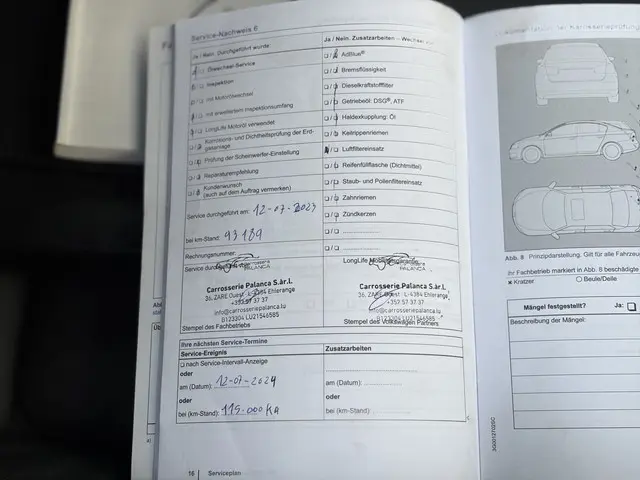 Service-Nachweis 6
Ja / Nein. Durchgeführt wurde
Ölwechsel-Service
Inspektion
mit Motorölwechsel
mit erweitertem Inspektionsumfang
LongLife Motoröl verwendet
Korrosions- und Dichtheitsprüfung der Erd-
gasanlage
Prüfung der Scheinwerfer-Einstellung
Reparaturempfehlung
Kundenwunsch
(auch auf dem Auftrag vermerken)
Service durchgeführt am: 12-07-2023
bei km-Stand: 93189
Rechnungsnummer:
Service durchgeführt von:
PALANCA
Carrosserie Palanca S.àr.l.
36, ZARE Ouest L-4384 Ehlerange
+352 57 37 37
info@carrosseriepalanca.lu
0123304 LU21546585
Stempel des Fachbetriebs
Ja / Nein. Zusatzarbeiten – Wechsel
AdBlue®
Bremsflüssigkeit
Dieselkraftstofffilter
Getriebeöl: DSG®, ATF
Haldexkupplung: Öl
Keilrippenriemen
Luftfiltereinsatz
Reifenfüllflasche (Dichtmittel)
Staub- und Pollenfiltereinsatz
Zahnriemen
Zündkerzen
LongLife
PALANCA
Carrosserie Palanca S.àr.l.
36, ZARE Ouest L-4384 Ehlerange
+352 57 37 37
info@carrosseriepalanca.lu
0123304 LU21546585
Stempel des Volkswagen Partners
Ihre nächsten Service-Termine
Service-Ereignis
nach Service-Intervall-Anzeige
oder
am (Datum): 12-07-2024
oder
bei (km-Stand): 115.000 Km
Zusatzarbeiten
am (Datum):
oder
bei (km-Stand):
16 Serviceplan
Dokumentation der Karosserieprüfung
Abb. 8 Prinzipdarstellung. Gilt für alle Fahrzeu
Ihr Fachbetrieb markiert in Abb. 8 beschädigte
Kratzer
Beule/Delle
Mängel festgestellt? Ja:
Beschreibung der Mängel: